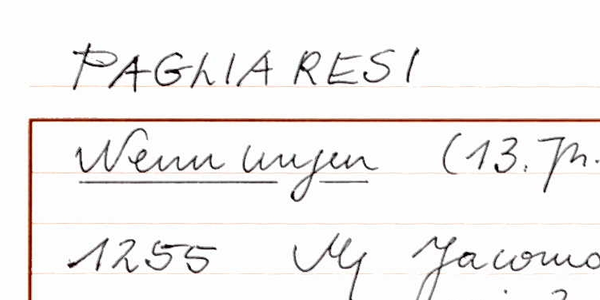 PAGLIARESI
Nennungen (13. Jh.
1255 Mſ Jacomo